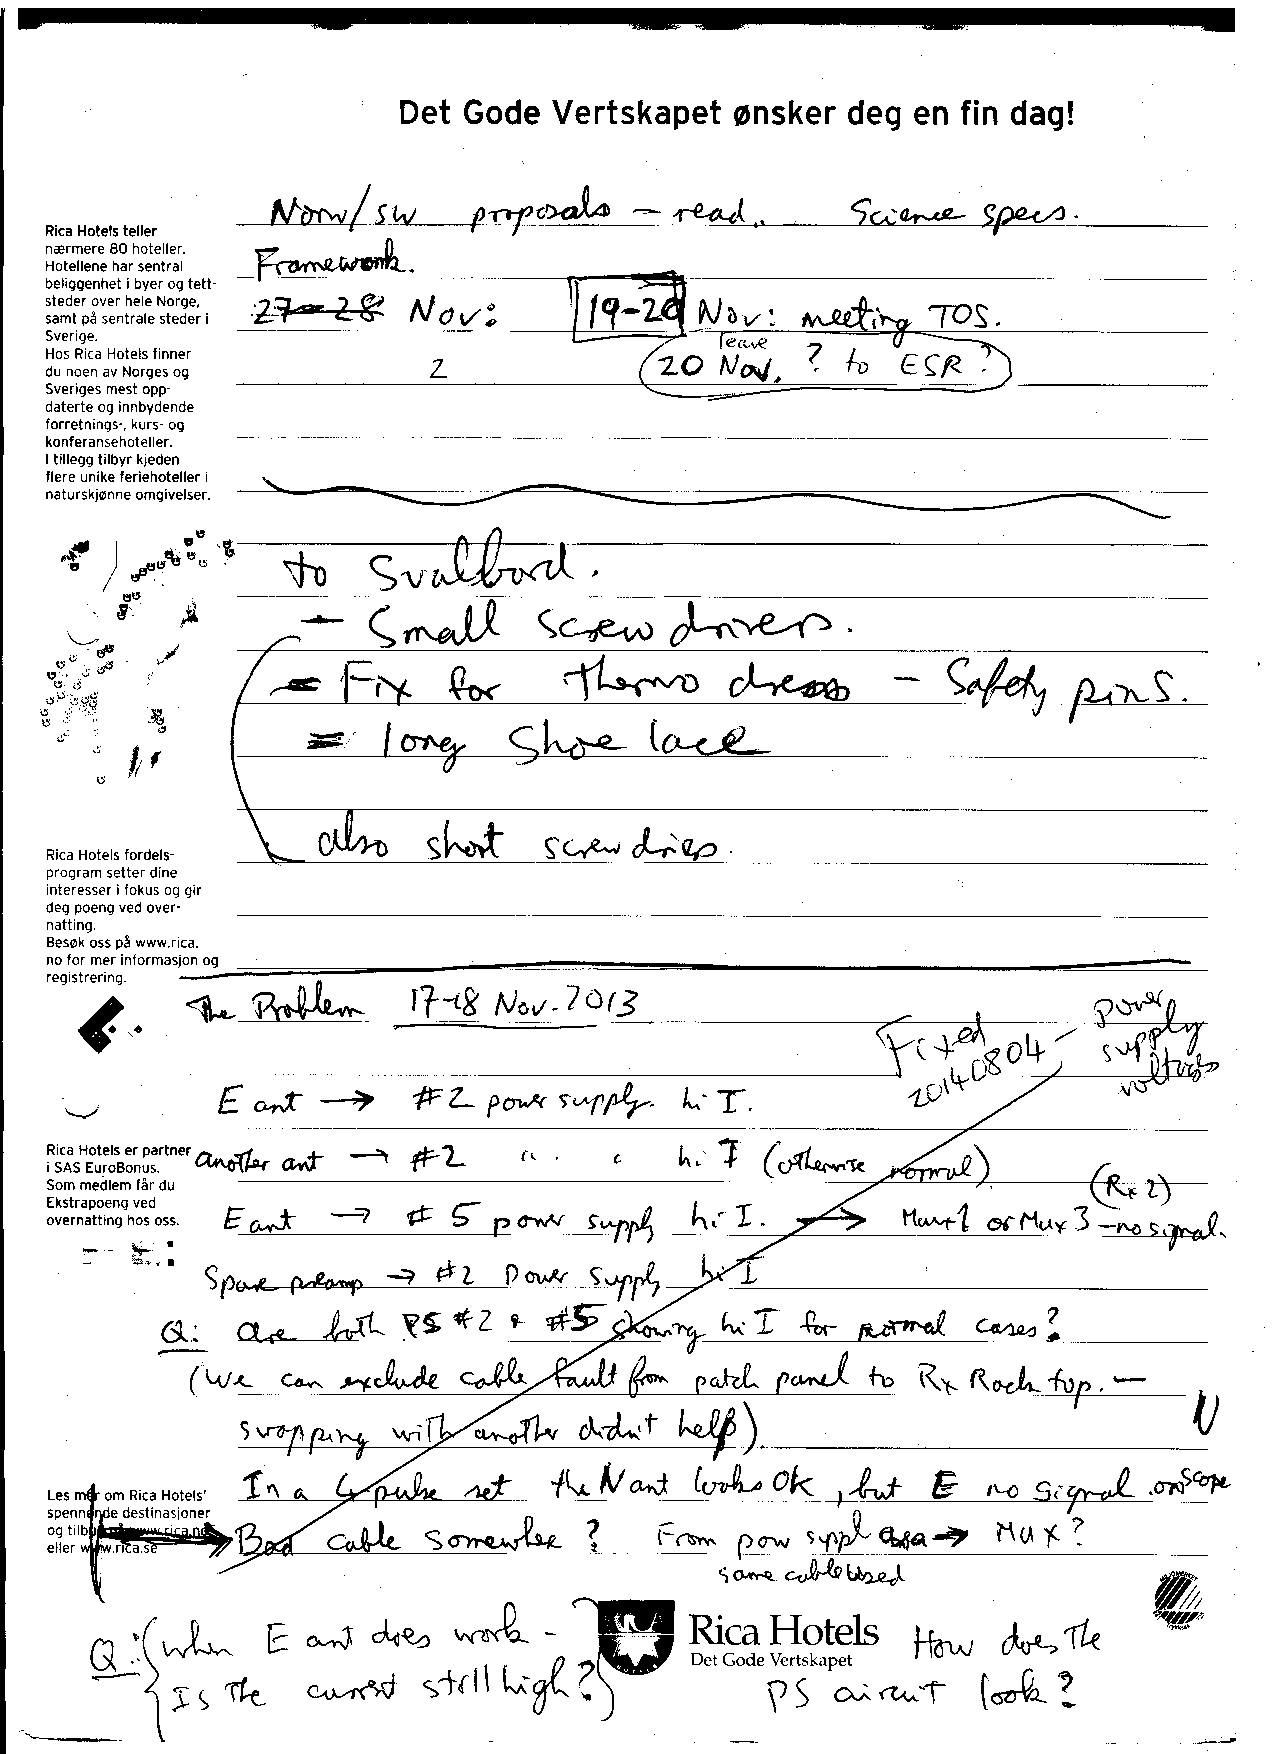 Det Gode Vertskapet ønsker deg en fin dag!
Norw/sw proposals – read. Science specs.
Framework.
27–28 Nov: 19–20 Nov: meeting TOS.
leave
2 20 Nov. ? to ESR?
Rica Hotels teller
nærmere 80 hoteller.
Hotellene har sentral
beliggenhet i byer og tett-
steder over hele Norge,
samt på sentrale steder i
Sverige.
Hos Rica Hotels finner
du noen av Norges og
Sveriges mest opp-
daterte og innbydende
forretnings-, kurs- og
konferansehoteller.
I tillegg tilbyr kjeden
flere unike feriehoteller i
naturskjønne omgivelser.
to Svalbard.
– Small screw drivers.
= Fix for thermo dress – Safety pins.
= long shoe lace
also short screw
Rica Hotels fordels-
program setter dine
interesser i fokus og gir
deg poeng ved over-
natting.
Besøk oss på www.rica.
no for mer informasjon og
registrering.
The Problem 17–18 Nov. 2013
Fixed 20140804 – power supply voltages
E ant → #2 power supply. hi I.
another ant → #2 " " hi I (otherwise normal)
(Rx 2)
E ant → #5 power supply hi I. → Mux 1 or Mux 3 – no signal.
Spare preamp → #2 Power Supply hi I
Rica Hotels er partner
i SAS EuroBonus.
Som medlem får du
Ekstrapoeng ved
overnatting hos oss.
Q: are both PS #2 & #5 showing hi I for normal cases?
(We can exclude cable fault from patch panel to Rx Rack top. –
swapping with another didn't help)
In a 4 pulse set the N ant looks OK, but E no signal on scope
Bad cable somewhere? From pow suppl → Mux?
same cable used
Les mer om Rica Hotels'
spennende destinasjoner
og tilbud på www.rica.no
eller www.rica.se
Q: (When E ant does work –
Is the current still high?)
Rica Hotels
Det Gode Vertskapet
How does the
PS circuit look?